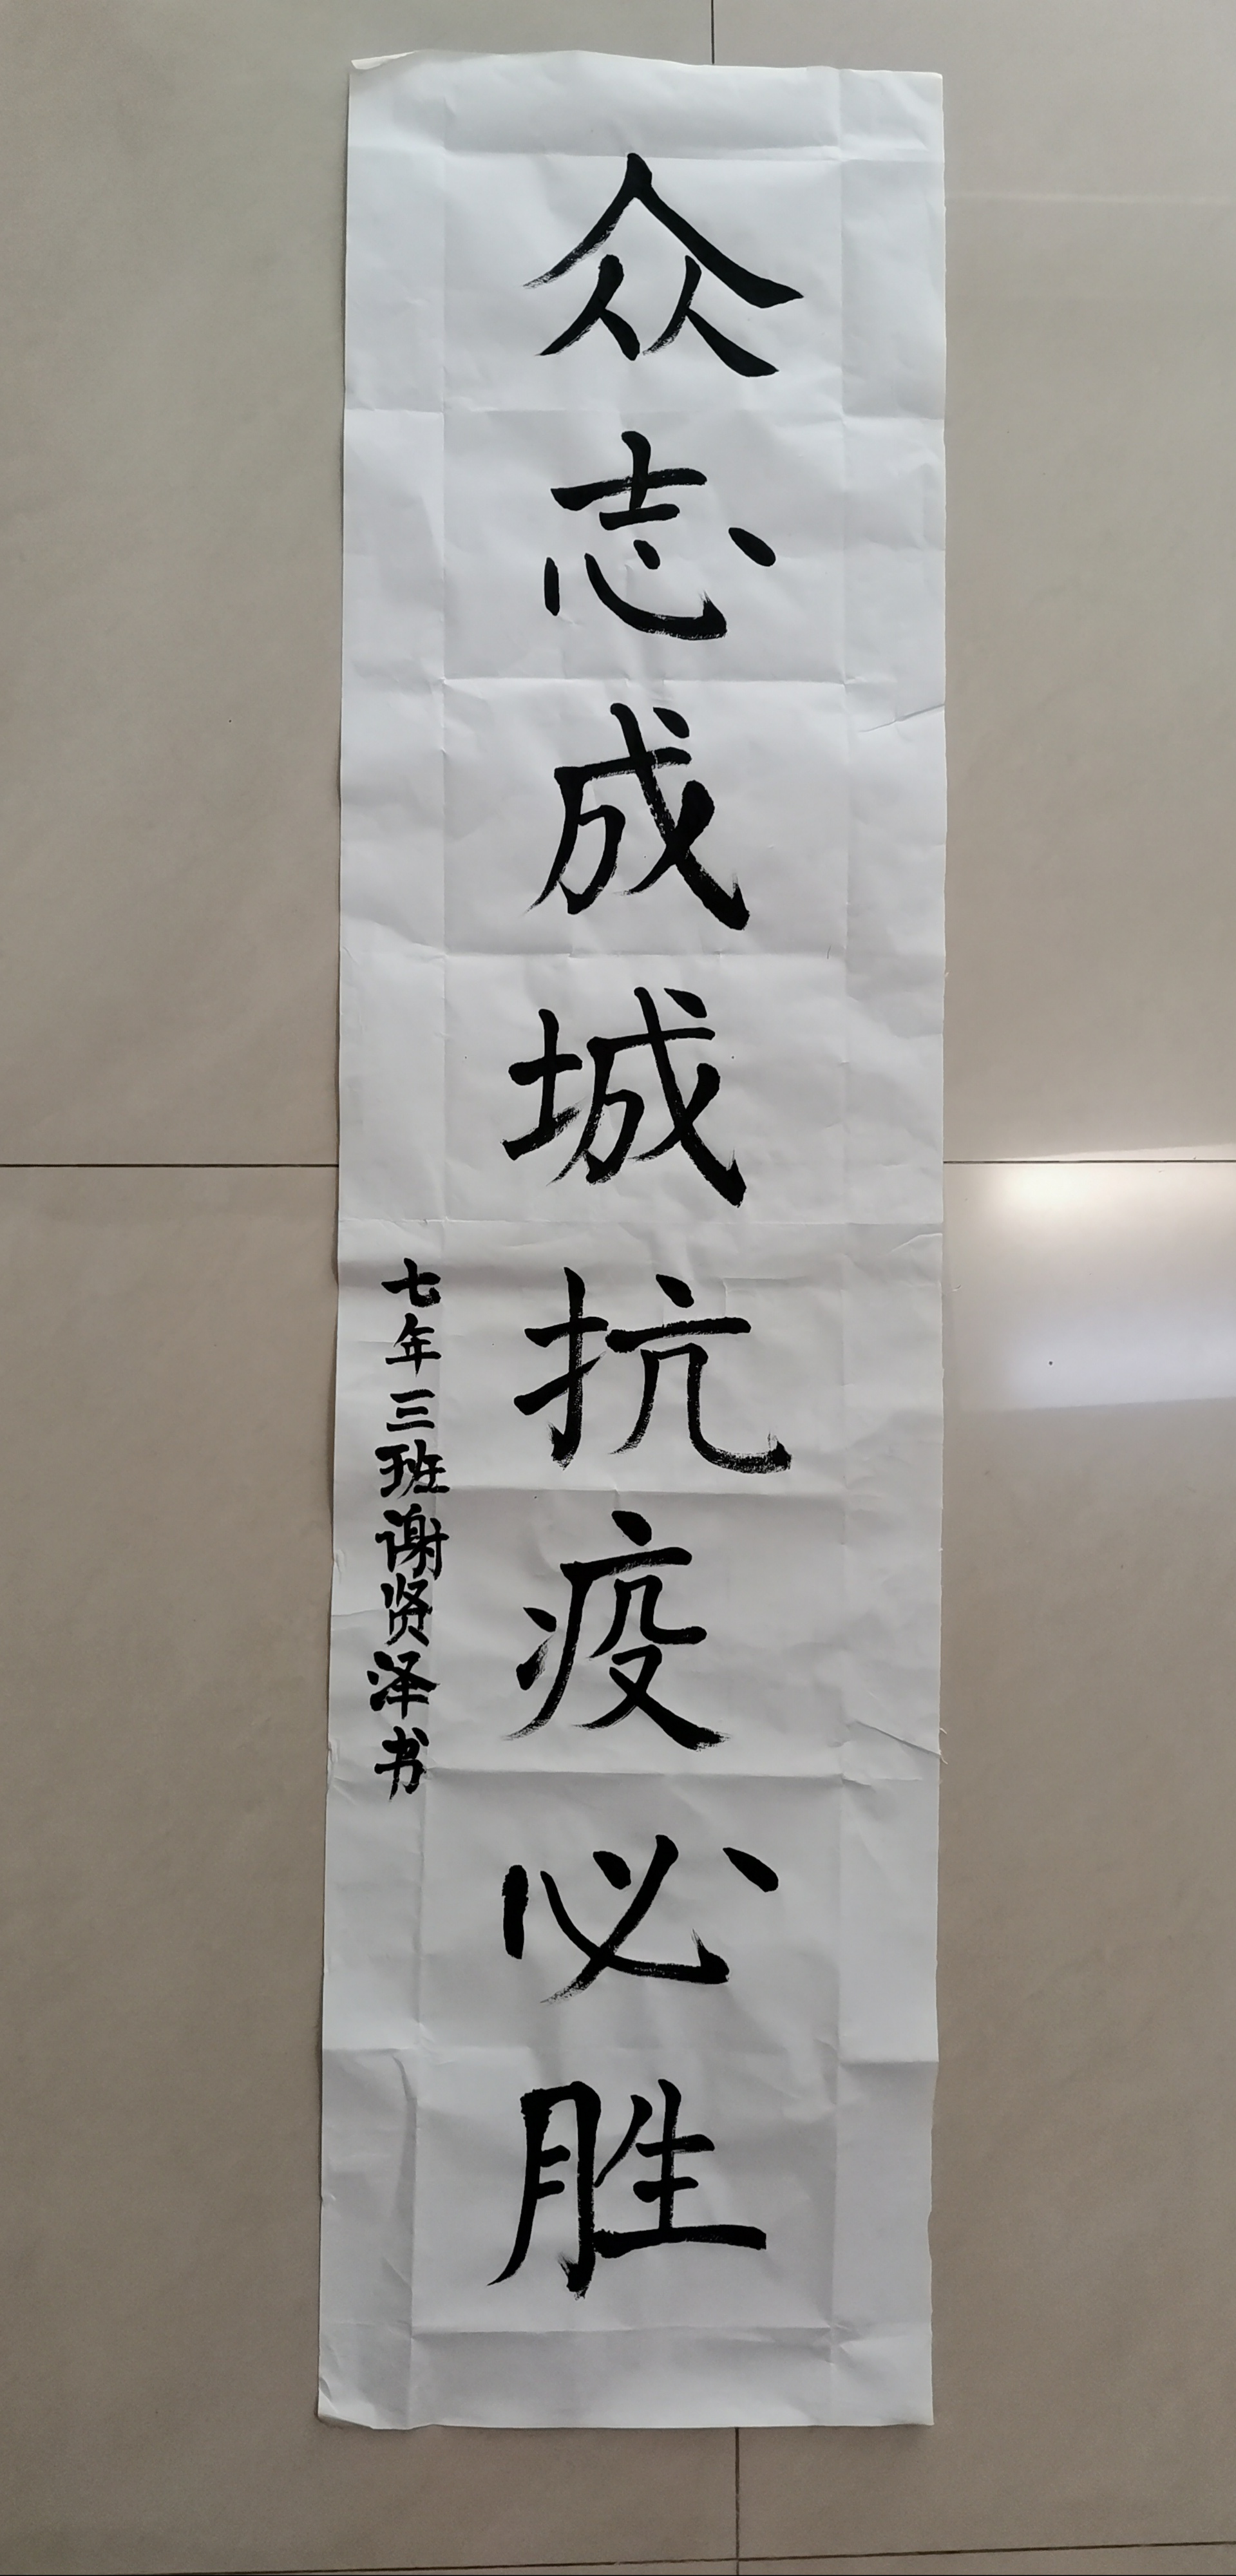 众志成城抗疫必胜
七年三班谢贤泽书